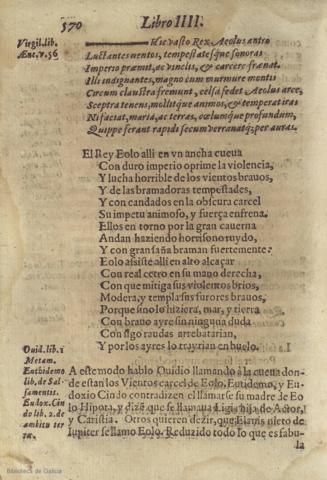 570 Libro IIII.
Virgil. lib.
Æne. v. 56
Hic vasto Rex Aeolus antro
Luctantes uentos, tempestatesque sonoras
Imperio præmit, ac vinclis, et carcere frænat.
Illi indignantes, magno cum murmure montis
Circum claustra fremunt, celsa sedet Aeolus arce,
Sceptra tenens, mollitque animos, & temperat iras
Ni faciat, maria, ac terras, cœlumque profundum,
Quippe ferant rapidi secum verrantq; per auras.
El Rey Eolo alli en vn ancha cueua
Con duro imperio oprime la violencia,
Y lucha horrible de los vientos brauos,
Y de las bramadoras tempestades,
Y con candados en la obscura carcel
Su impetu animoso, y fuerça enfrena.
Ellos en torno por la gran cauerna
Andan haziendo horrisono ruydo,
Y con gran saña braman fuertemente:
Eolo assiste alli en alto alcaçar
Con real cetro en su mano derecha,
Con que mitiga sus violentos brios,
Modera, y templa sus furores brauos,
Porque si no lo hiziera, mar, y tierra
Con brauo ayre sin ninguna duda
Consigo raudas arrebatarian,
Y por los ayres lo trayrian en buelo.
Ouid. lib. 1
Metam.
Euthidemo
lib. de Sal-
samentis.
Eudox. Cin
do lib. 2. de
ambitu ter
ræ.
A este modo hablo Ouidio llamando à la cueua don-
de estan los Vientos carcel de Eolo, Eutidemo, y Eu-
doxio Cindo contradizen el llamarse su madre de Eo
lo Hipota, y dizē que se llamaua Ligia hija de Actor,
y Caristia. Otros quieren dezir, que Elanis nieto de
Iupiter se llamo Eolo. Reduzido todo lo que es fabu-
la
Biblioteca de Galicia